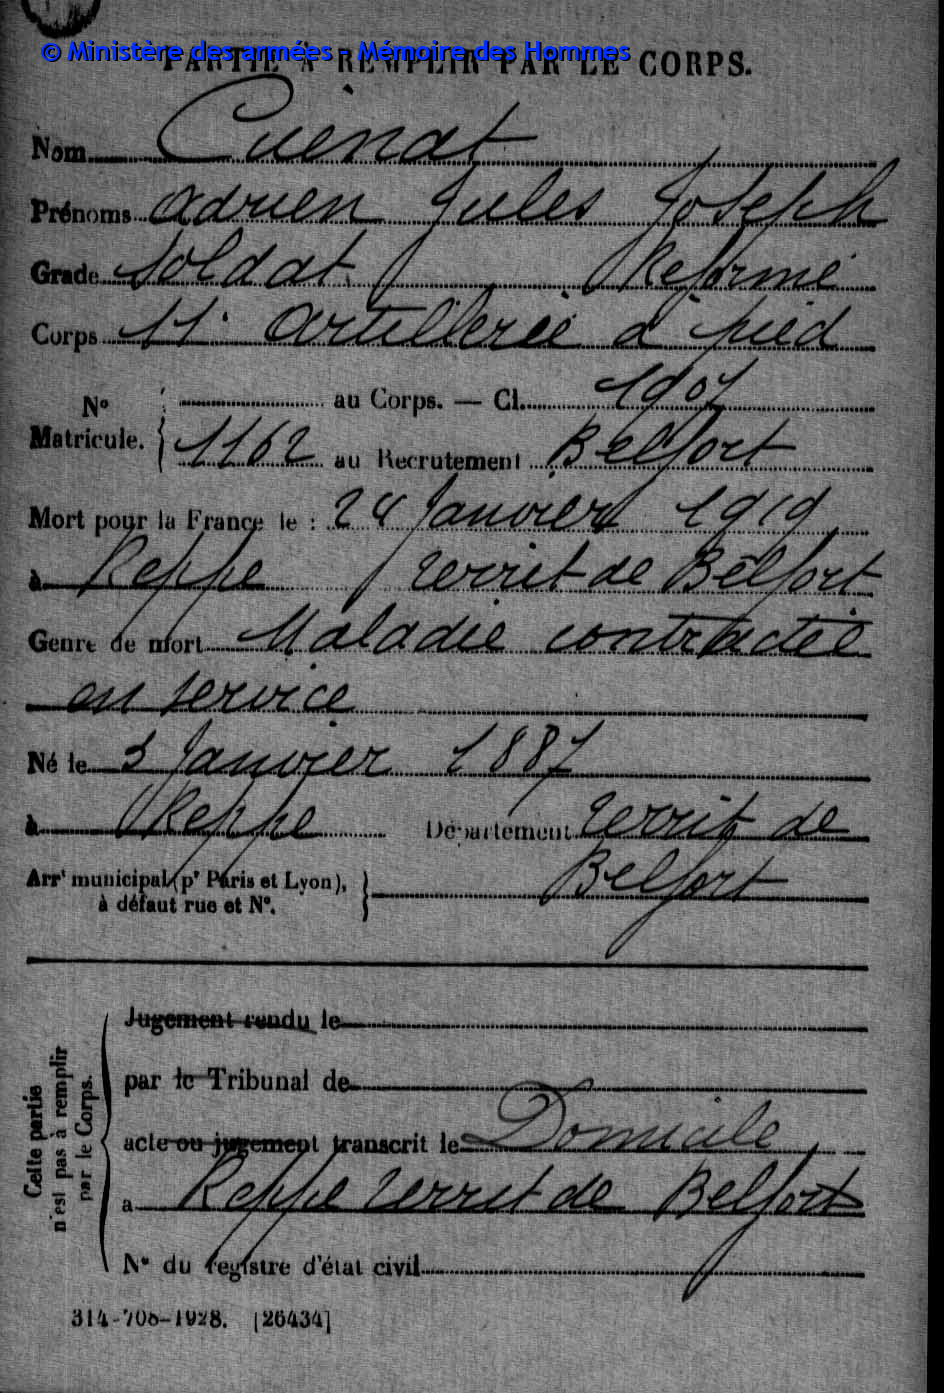 © Ministère des armées - Mémoire des Hommes
PARTIE À REMPLIR PAR LE CORPS.
Nom Cuenat
Prénoms Adrien Jules Joseph
Grade Soldat Réformé
Corps 11e Artillerie à pied
N° Matricule. { au Corps. — Cl. 1907
1162 au Recrutement Belfort
Mort pour la France le : 24 Janvier 1919
à Reppe Territ de Belfort
Genre de mort Maladie contractée
en service
Né le 3 Janvier 1887
à Reppe Département Territ de
Belfort
Arrt municipal (pr Paris et Lyon), }
à défaut rue et N°.
Cette partie n'est pas à remplir par le Corps.
Jugement rendu le
par le Tribunal de
acte ou jugement transcrit le Domicile
à Reppe Territ de Belfort
N° du registre d'état civil
314-708-1928. [26434]